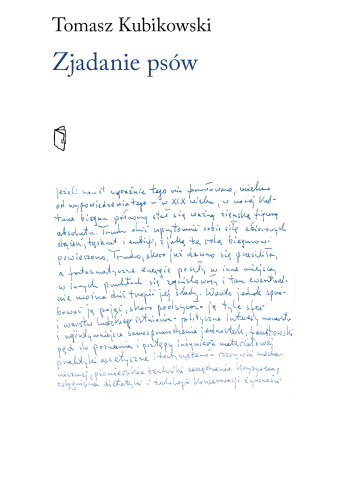 Tomasz Kubikowski
Zjadanie psów
Jeżeli nawet wyraźnie tego nie formułowano, niewiele
od wypowiedzenia tego – w XIX wieku, w naszej kul-
turze biegun północny stał się ważną ziemską figurą
absolutu. Trudno dziś uprzytomnić sobie siłę zbiorowych
dążeń, tęsknot i ambicji, z jaką tę rolę biegunowi
powierzono. Trudno, skoro już dawno się przesiliła,
a fantazmatyczne energie poszły w inne miejsca,
w innych punktach się zogniskowały i tam ewentual-
nie można dziś tropić jej ślady. Warto jednak spró-
bować ją pojąć, skoro podsycało ją tyle sfer
i warstw ludzkiego istnienia: polityczne interesy mocarstw
i najintymniejsze samospraw­dzenia jednostek, faustowski
pęd do poznania i postępy inżynierii materiałowej
praktyki ascetyczne i
nicznej, pionierskie techniki zarządzania kryzysem,
osiągnięcia dietetyki i technologii konserwacji żywności